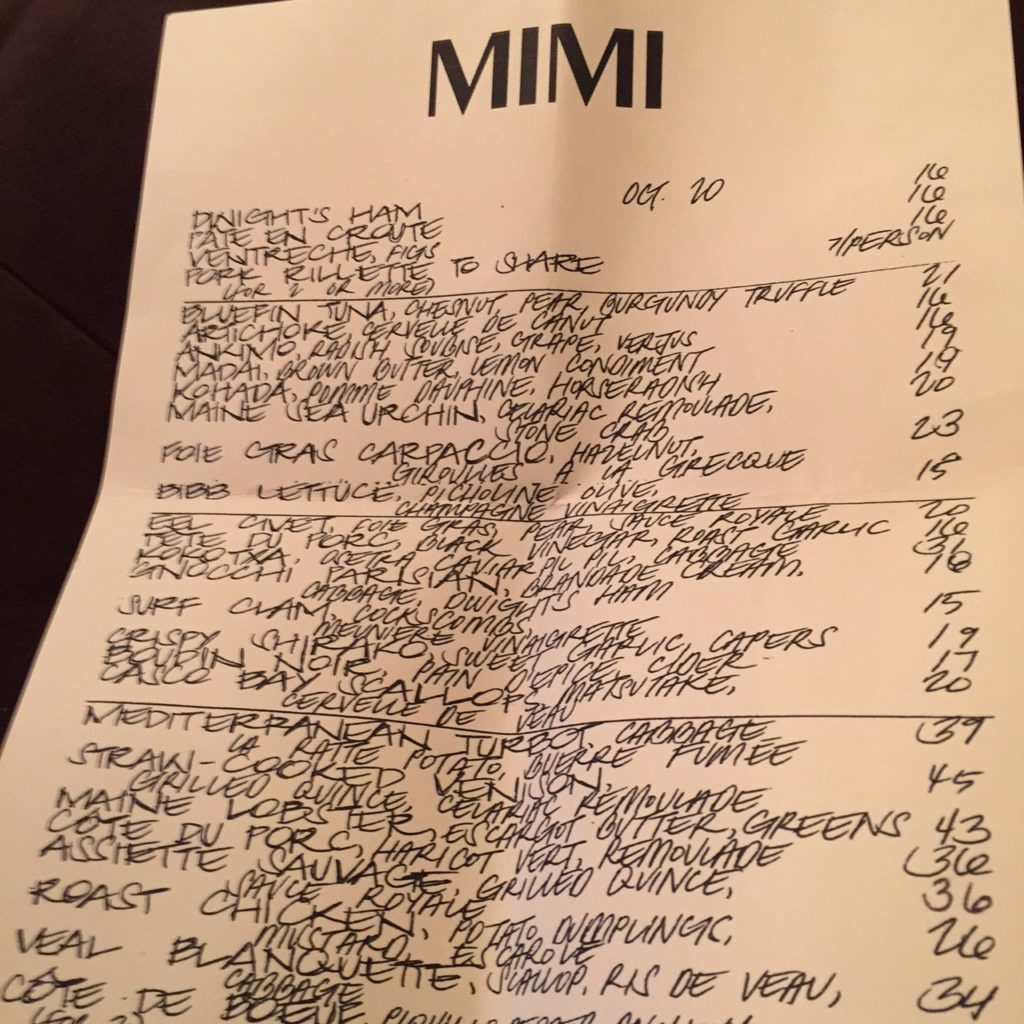 MIMI
OCT. 20
DWIGHT'S HAM 16
PATE EN CROUTE 16
VENTRECHE, FIGS 16
PORK RILLETTE TO SHARE 7/PERSON
(FOR 2 OR MORE)
BLUEFIN TUNA, CHESNUT, PEAR, BURGUNDY TRUFFLE 21
ARTICHOKE, CERVELLE DE CANUT 16
ANKIMO, RADISH SOUBISE, GRAPE, VERJUS 16
MADAI, BROWN BUTTER, LEMON CONDIMENT 19
KOHADA, POMME DAUPHINE, HORSERADISH 19
MAINE SEA URCHIN, CELARIAC REMOULADE, 20
STONE CRAB
FOIE GRAS CARPACCIO, HAZELNUT, 23
GIROLLES À LA GRECQUE
BIBB LETTUCE, PICHOLINE OLIVE, 15
CHAMPAGNE VINAIGRETTE
EEL CIVET, FOIE GRAS, PEAR, SAUCE ROYALE 20
TÊTE DU PORC, BLACK VINEGAR, ROAST GARLIC 16
KOKOTXA, OSETRA CAVIAR PIL PIL, CABBAGE 36
GNOCCHI PARISIAN, BRANDADE CREAM, 16
CABBAGE, DWIGHT'S HAM
SURF CLAM, COCKSCOMBS 15
MEUNIERE VINAIGRETTE
CRISPY SHIRAKO, SWEET GARLIC, CAPERS 19
BOUDIN NOIR, PAIN D'EPICE, CIDER 17
CASCO BAY SCALLOPS, MATSUTAKE, 20
CERVELLE DE VEAU
MEDITERRANEAN TURBOT, CABBAGE 39
LA RATTE POTATO, BUERRE FUMÉE
STRAW-COOKED VENISON, 45
GRILLED QUINCE, CELARIAC REMOULADE
MAINE LOBSTER, ESCARGOT BUTTER, GREENS 43
CÔTE DU PORC, HARICOT VERT, REMOULADE 36
ASSIETTE SAUVAGE, GRILLED QUINCE, 36
SAUCE ROYALE
ROAST CHICKEN, POTATO DUMPLINGS, 26
MUSTARD, ESCAROLE
VEAL BLANQUETTE, SCALLOP, RIS DE VEAU, 34
CABBAGE
CÔTE DE BOEUF,
(FOR 2)